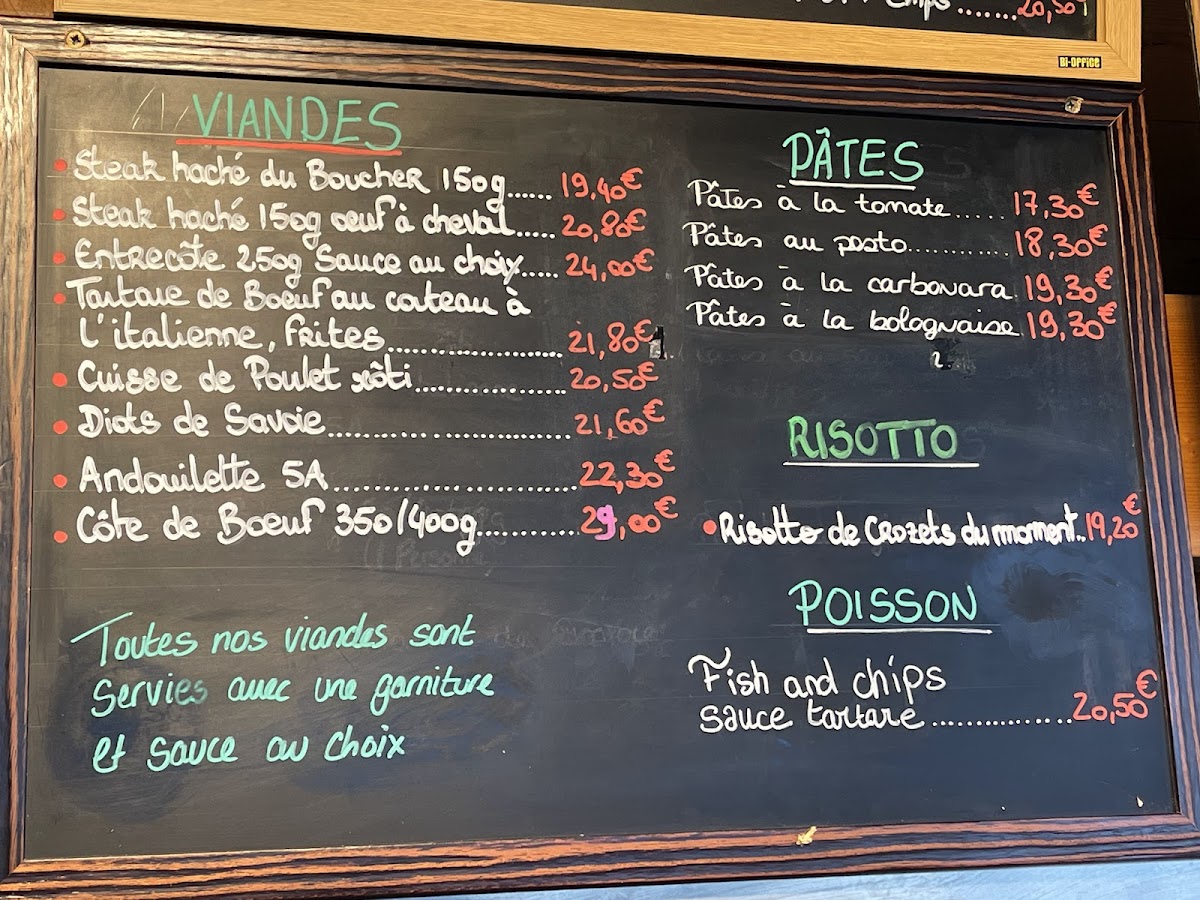 chips ....... 20,50€
Bi-Office
VIANDES
• Steak haché du Boucher 150g...... 19,40€
• Steak haché 150g œuf à cheval..... 20,80€
• Entrecôte 250g Sauce au choix..... 24,00€
• Tartare de Boeuf au couteau à
l'italienne, frites.................. 21,80€
• Cuisse de Poulet rôti................ 20,50€
• Diots de Savoie......................... 21,60€
• Andouilette 5A......................... 22,30€
• Côte de Boeuf 350/400g........... 29,00€
Toutes nos viandes sont
servies avec une garniture
et sauce au choix
PÂTES
Pâtes à la tomate..... 17,30€
Pâtes au pesto........... 18,30€
Pâtes à la carbonara. 19,30€
Pâtes à la bolognaise 19,30€
RISOTTO
• Risotto de Crozets du moment.. 19,20€
POISSON
Fish and chips
sauce tartare............... 20,50€